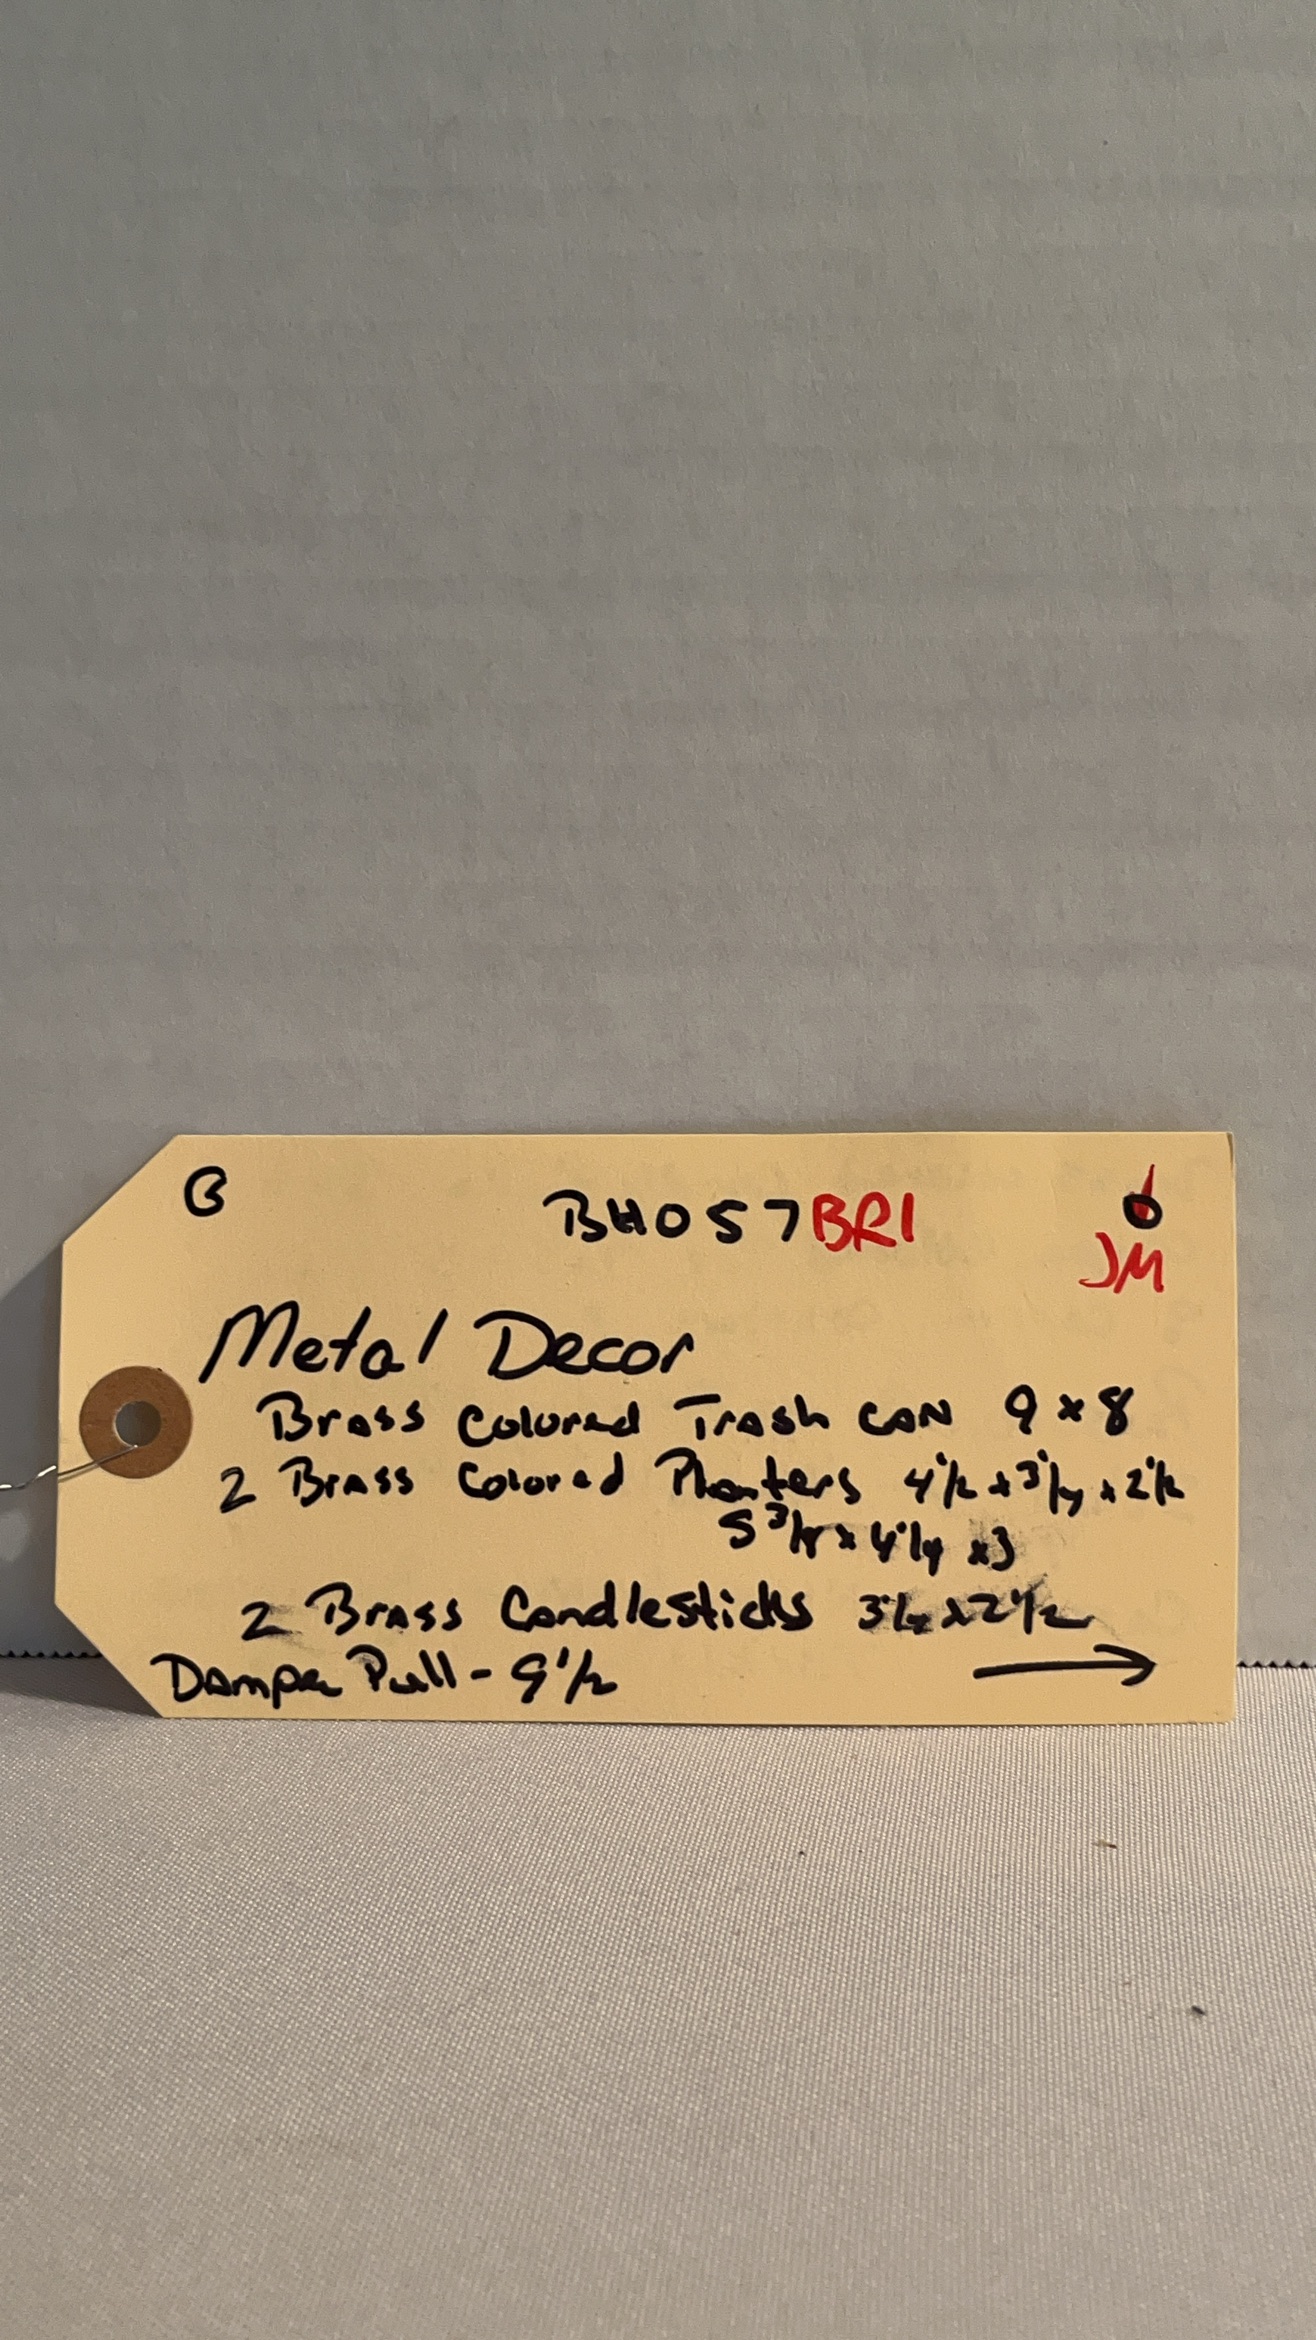 B BH057BR1
JM
Metal Decor
Brass Colored Trash CAN 9 x 8
2 Brass Colored Planters 4 1/2 x 3 1/4 x 2 1/2
x 4 1/4 x 3
2 Brass Candlesticks x 2 1/2
Damper Pull - 9 1/2 →